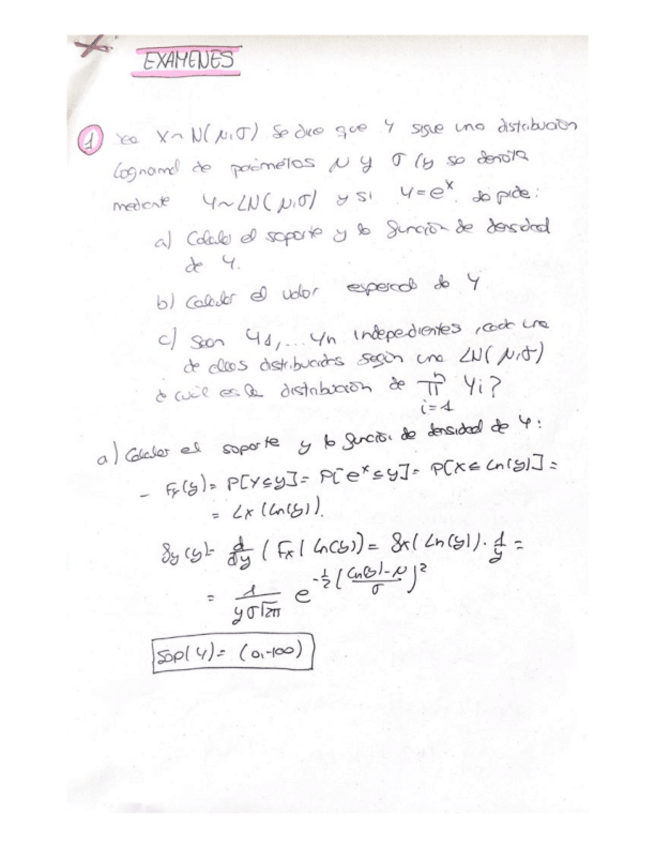 EXAMENES
1 Sea X~N(μ,σ) Se dice que Y sigue una distribución
Lognormal de parámetros μ y σ (y se denota
mediante Y~LN(μ,σ) y si Y=e^x. se pide:
a) Calcular el soporte y la función de densidad
de Y.
b) Calcular el valor esperado de Y
c) Sean Y1,...Yn indepedientes, cada una
de ellas distribuidas según una LN(μ,σ)
¿cuál es la distribución de ∏ Yi?
n
i=1
a) Calcular el soporte y la función de densidad de Y:
- Fy(y)= P[Y≤y]= P[e^x≤y]= P[X≤Ln(y)]=
= Lx(Ln(y)).
fy(y)= d/dy (Fx(Ln(y))= fx(Ln(y))·1/y =
= 1/(yσ√2π) e^(-1/2((Ln(y)-μ)/σ)^2)
Sop(Y)= (0,+∞)